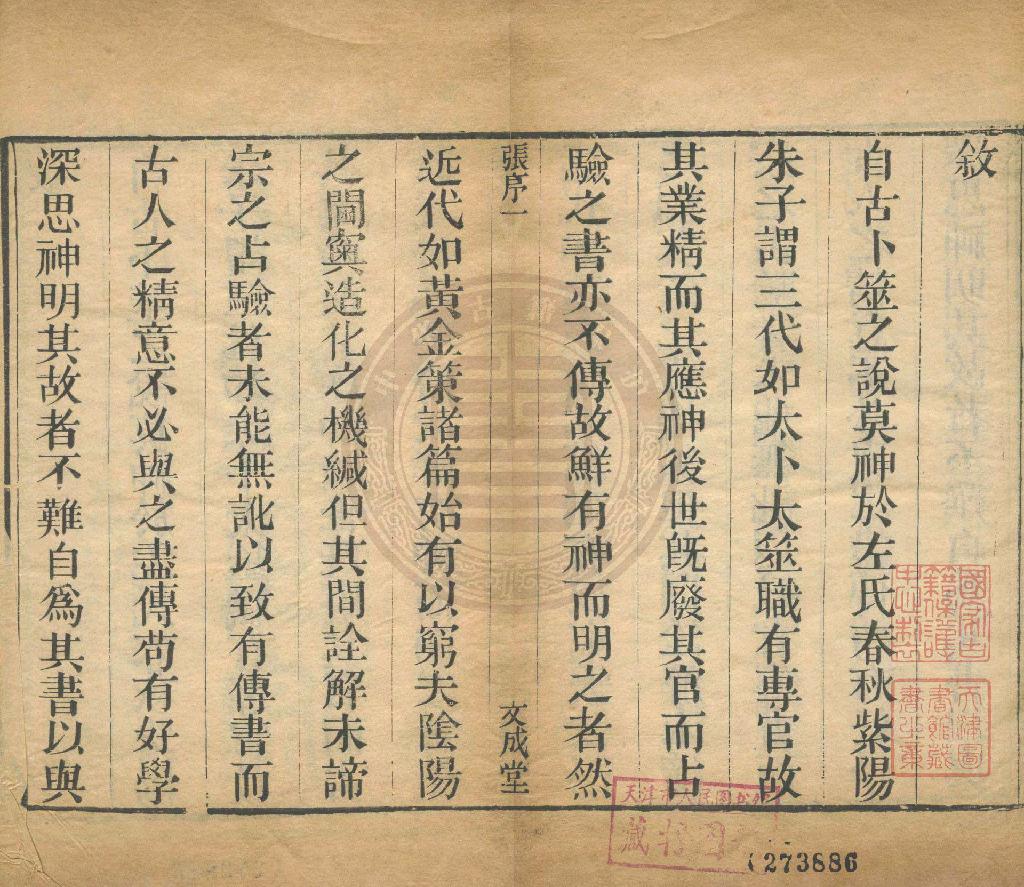 敘
自古卜筮之說莫神於左氏春秋紫陽
朱子謂三代如太卜太筮職有專官故
其業精而其應神後世旣廢其官而占
驗之書亦不傳故鮮有神而明之者然
張序一
文成堂
近代如黃金策諸篇始有以窮夫陰陽
之閫奧造化之機緘但其間詮解未諦
宗之占驗者未能無訛以致有傳書而
古人之精意不必與之盡傳苟有好學
深思神明其故者不難自為其書以與
國家古籍保護
天津圖書館藏書之章
天津市人民圖書館
藏書圖
273686